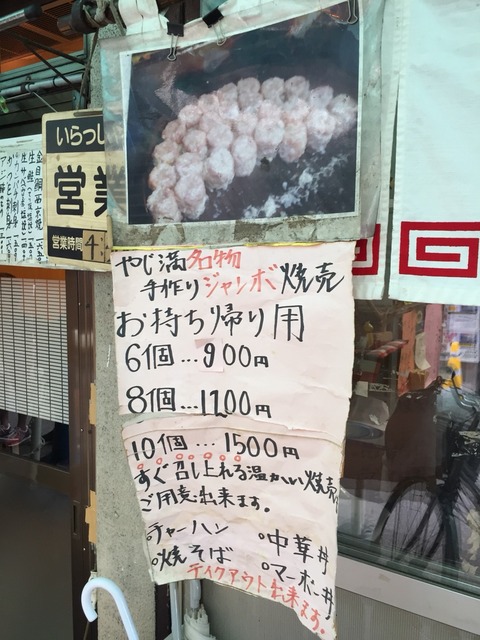 いらっし
営業
営業時間 4:
やじ満名物
手作りジャンボ焼売
お持ち帰り用
6個…900円
8個…1100円
10個…1500円
すぐ召し上れる温かい焼売
ご用意出来ます。
○チャーハン ○中華丼
○焼そば ○マーボー丼
テイクアウト出来ます。